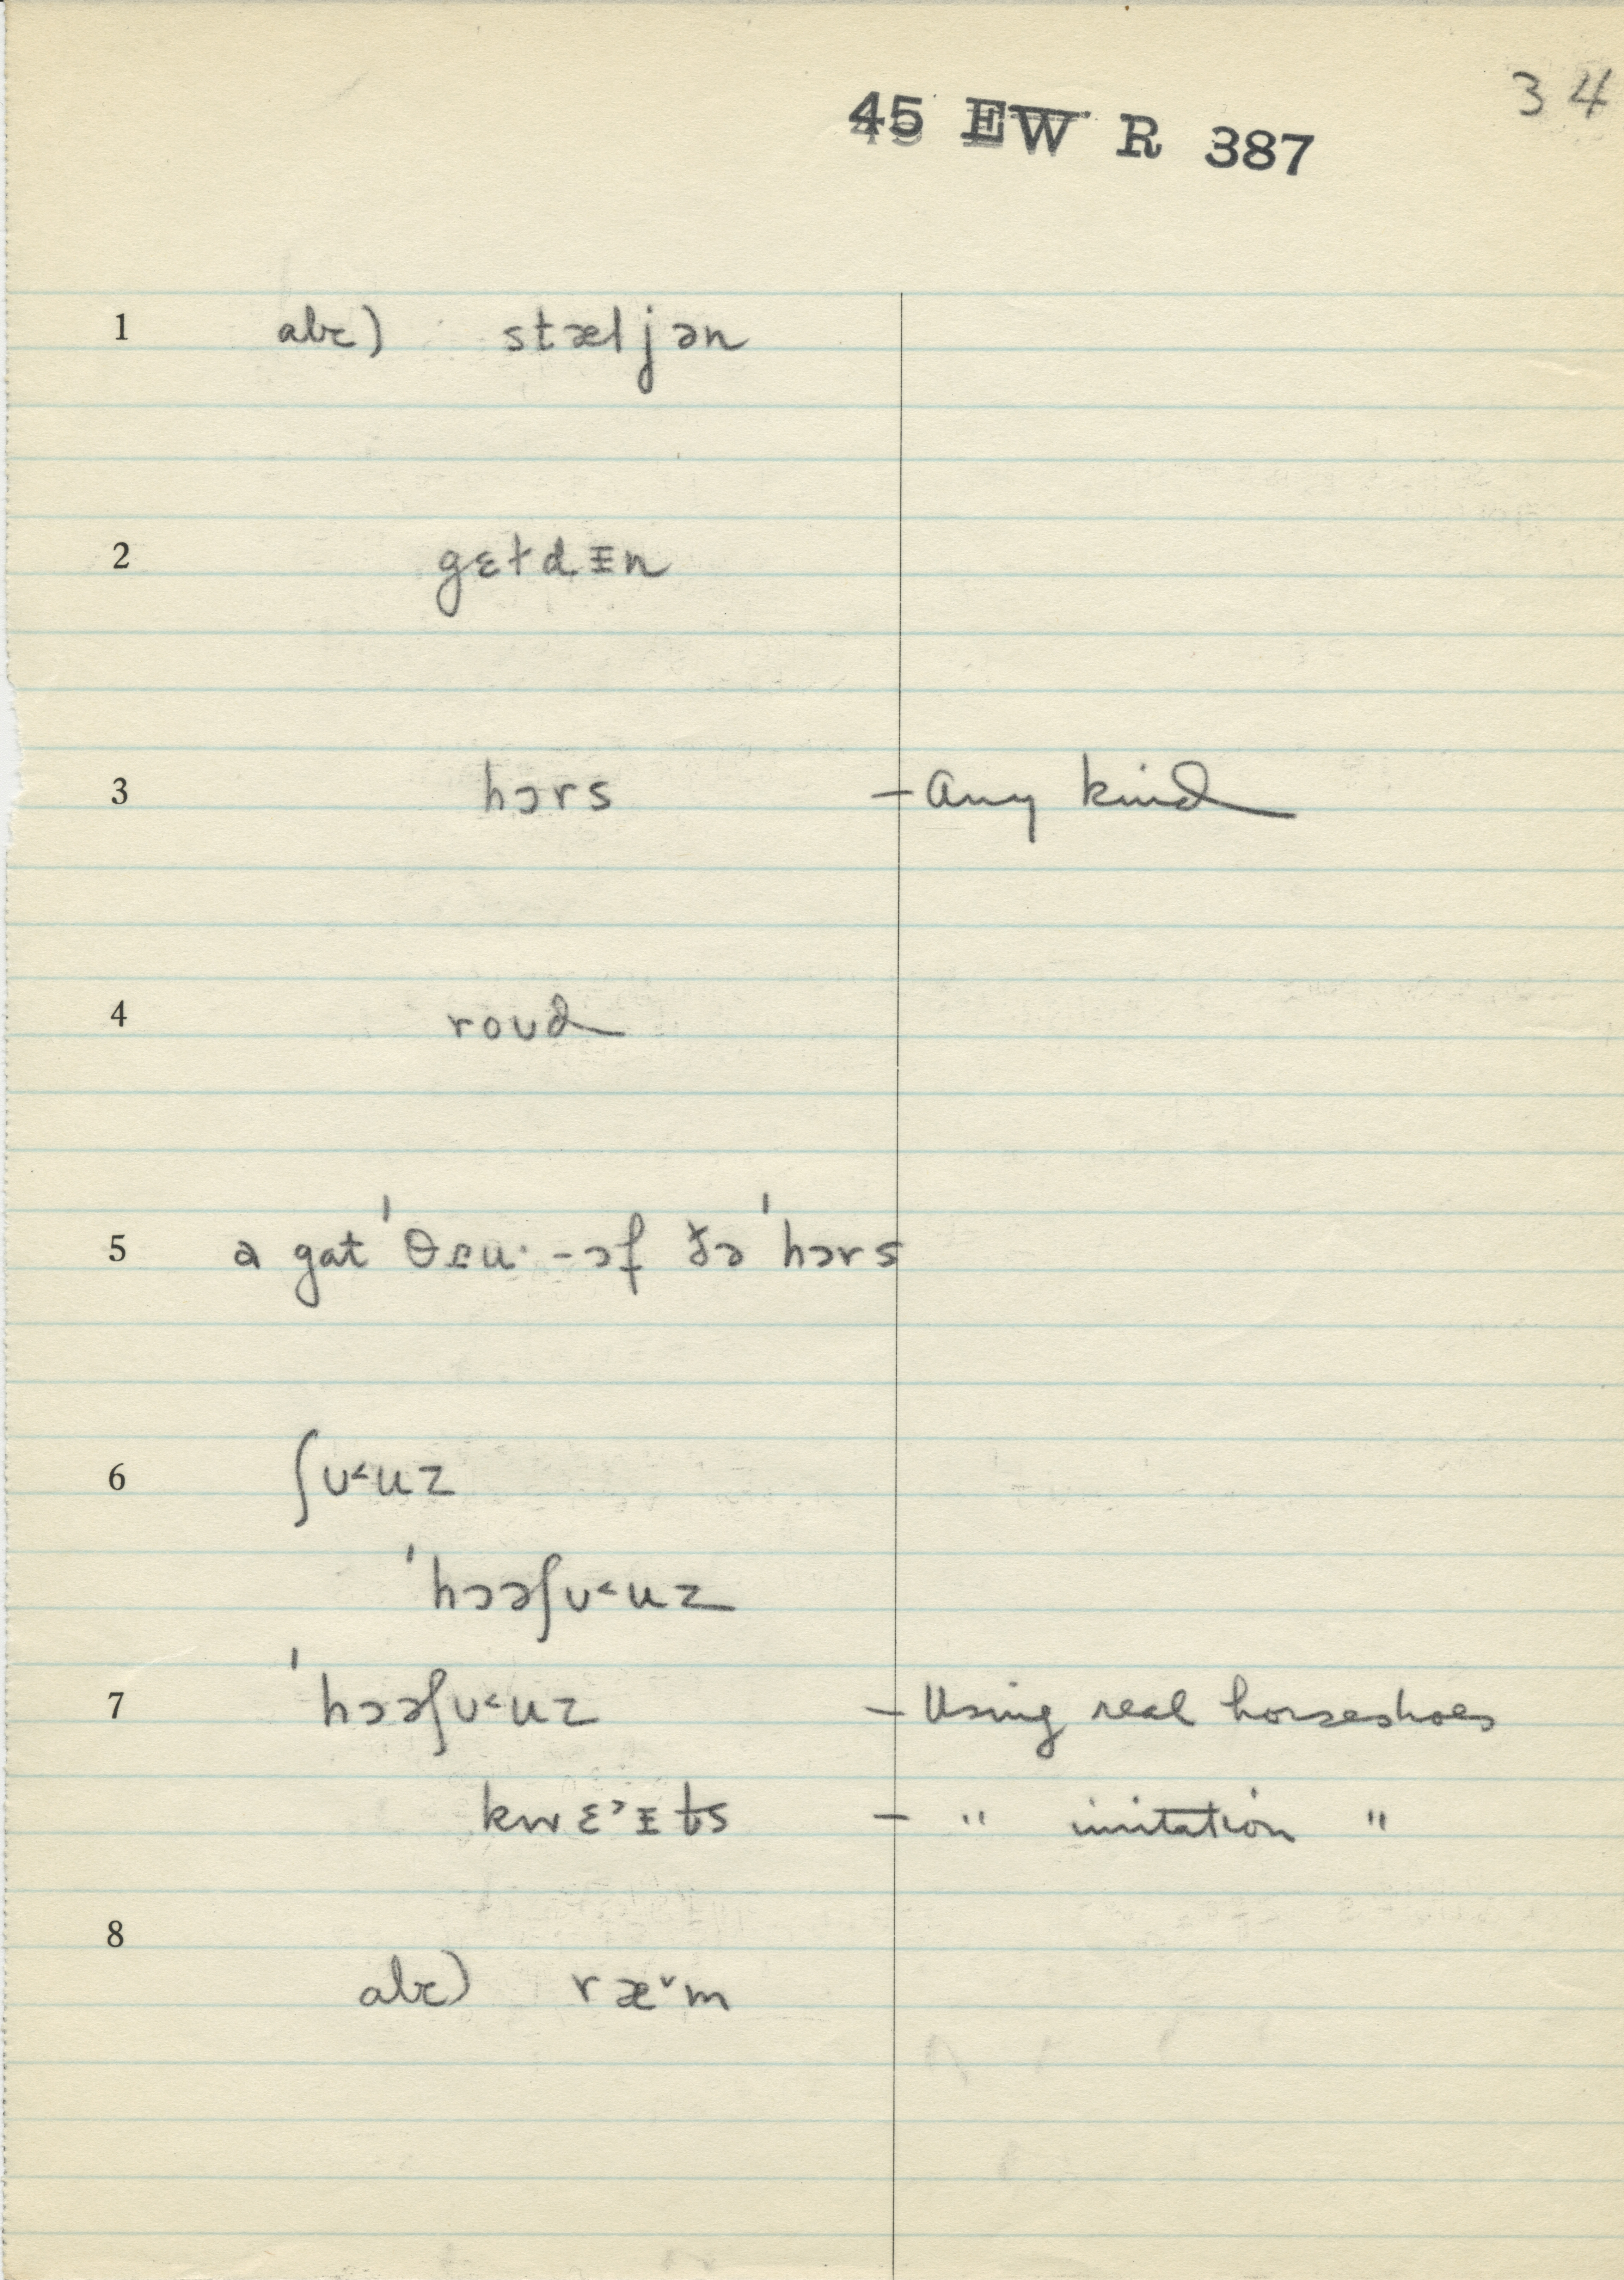 34
45 EW R 387
1 abc) stæljən
2 gɛtdᵻn
3 hɔrs – Any kind
4 roʊd
5 ə gat ˈθɛu· -ɔf̵ ðə ˈhɔrs
6 ʃʊ˂uz
ˈhɔəʃʊ˂uz
7 ˈhɔəʃʊ˂uz – Using real horseshoes
kwɛ˃ᵻt̬s – " imitation "
8
abc) ræ˅m